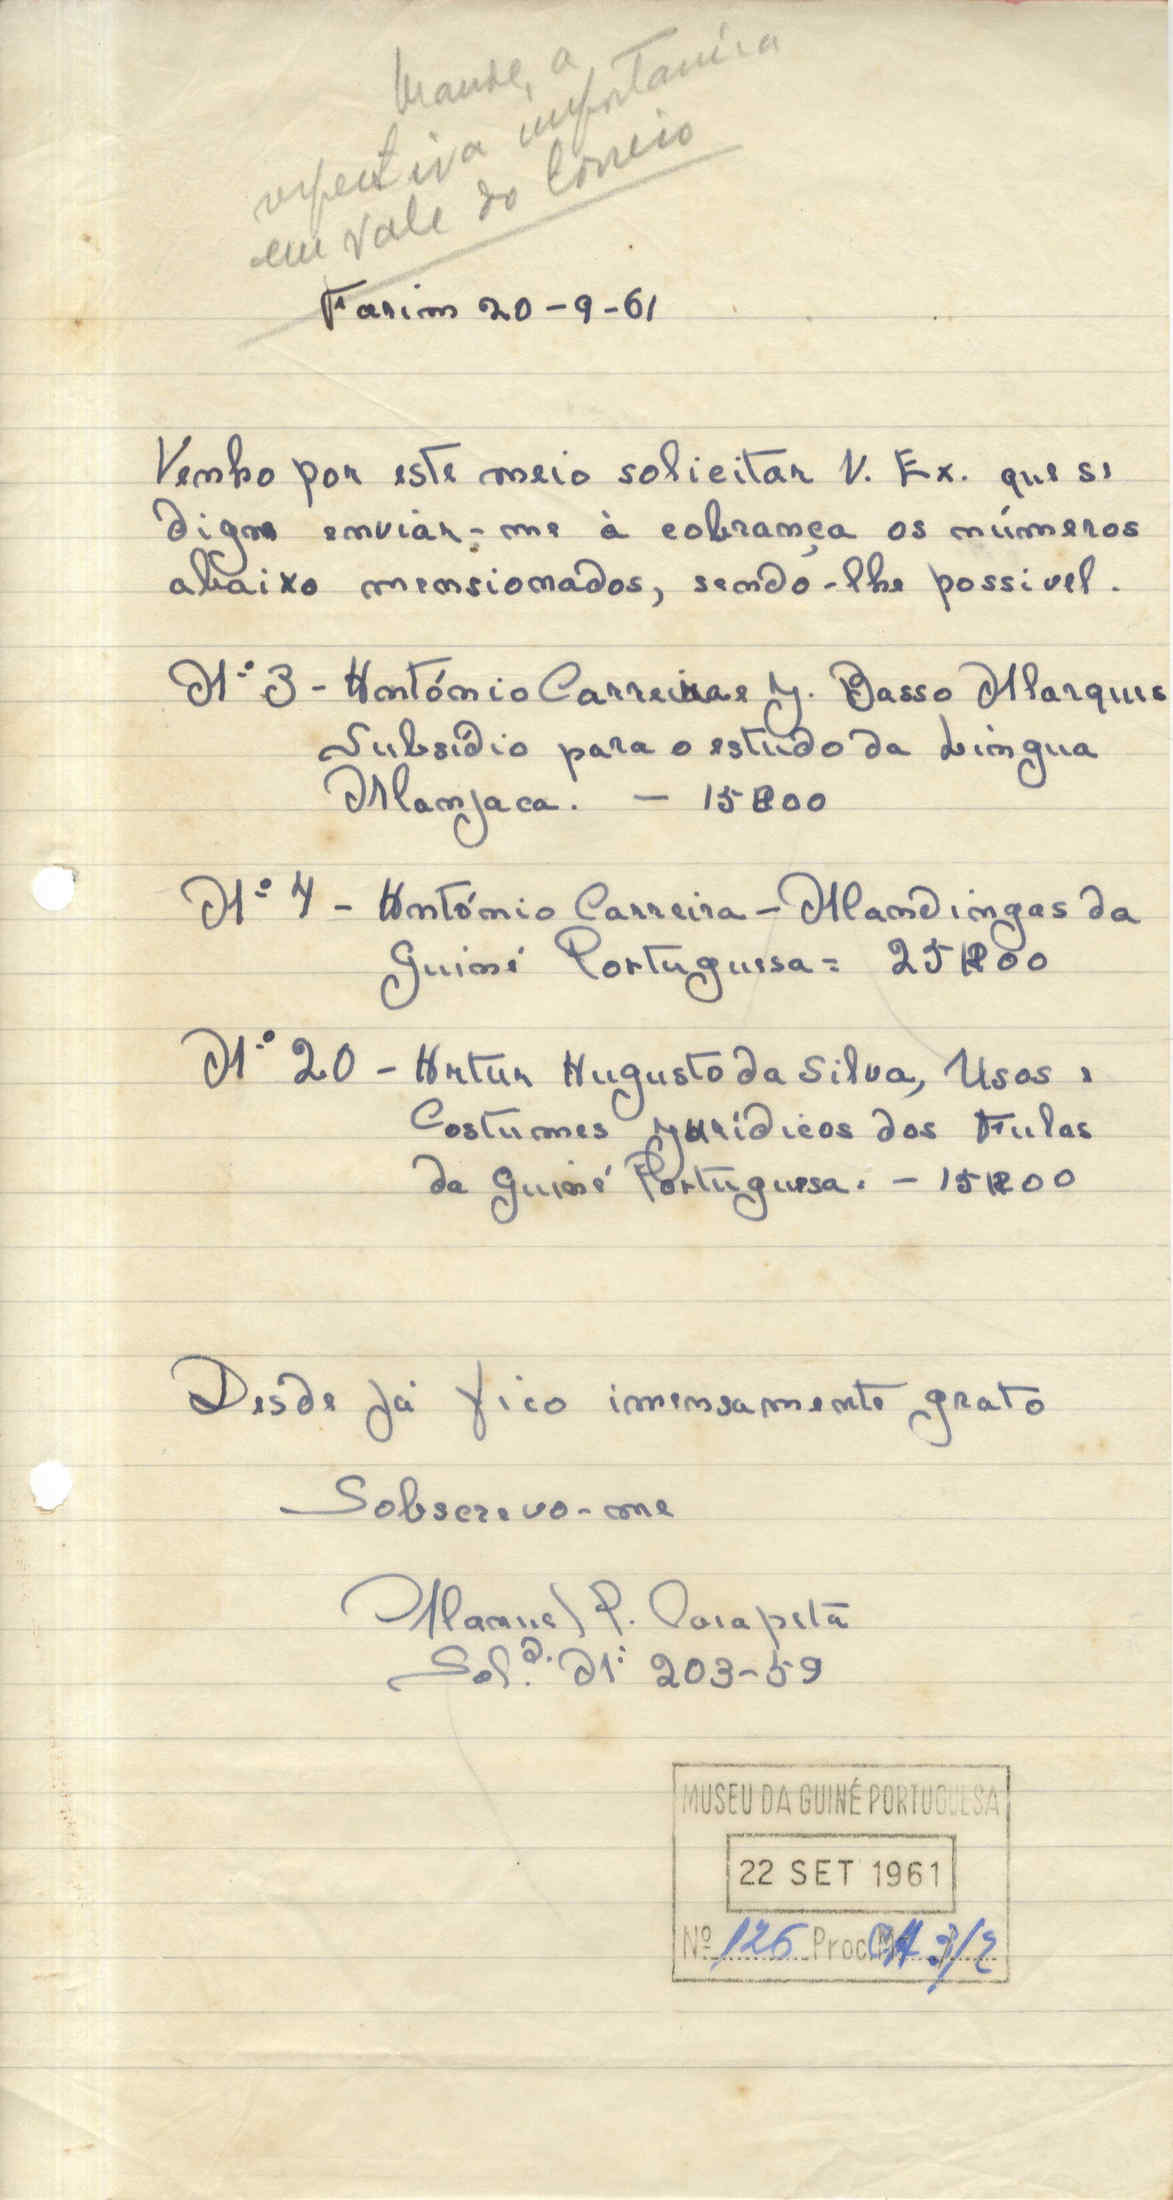 Mande, a
respectiva importancia
em vale do Correio
Farim 20-9-61
Venho por este meio solicitar V. Ex. que se
digne enviar-me à cobrança os números
abaixo mensionados, sendo-lhe possivel.
Nº 3 - António Carreira e J. Basso Marques
Subsídio para o estudo da Lingua
Manjaca. - 15$00
Nº 4 - António Carreira - Mandingas da
Guiné Portuguesa = 25$00
Nº 20 - Artur Augusto da Silva, Usos e
Costumes Jurídicos dos Fulas
da Guiné Portuguesa. - 15$00
Desde já fico imensamente grato
Sobscrevo-me
Manuel P.
Sol.d. Nº 203-59
MUSEU DA GUINÉ PORTUGUESA
22 SET 1961
Nº 126 Proc. 3/2